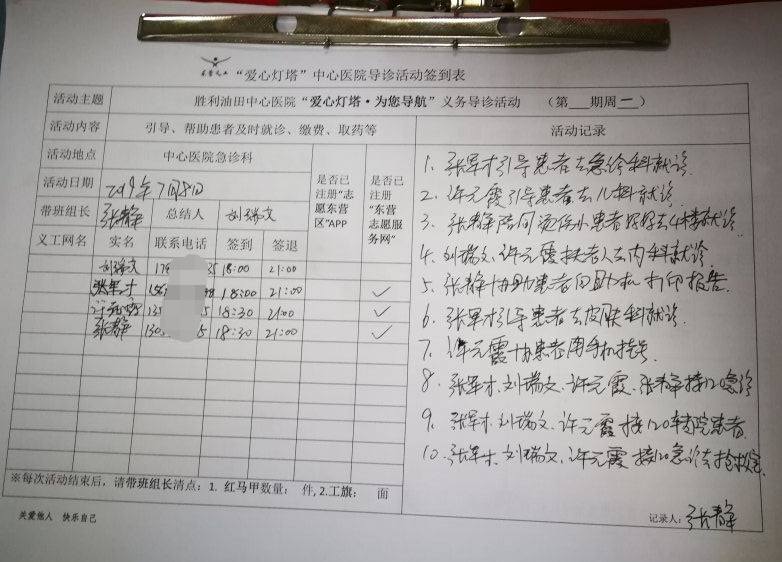 东营义工
“爱心灯塔”中心医院导诊活动签到表
活动主题 胜利油田中心医院“爱心灯塔·为您导航”义务导诊活动 （第 期周一）
活动内容 引导、帮助患者及时就诊、缴费、取药等
活动记录
活动地点 中心医院急诊科
活动日期 2019年7月8日
带班组长 张静 总结人 刘瑞文
是否已注册“志愿东营区”APP
是否已注册“东营志愿服务网”
义工网名 实名 联系电话 签到 签退
刘瑞文 18:00 21:00
张军才 18:00 21:00 ✓
许元霞 18:30 21:00 ✓
张静 18:30 21:00 ✓
1. 张军才引导患者去急诊科就诊
2. 许元霞引导患者去儿科就诊
3. 张静陪同烫伤小患者去4楼就诊
4. 刘瑞文、许元霞扶老人去内科就诊
5. 张静协助患者自助机打印报告
6. 张军才引导患者去皮肤科就诊
7. 许元霞协患者用手机挂号
8. 张军才、刘瑞文、许元霞、张静接120急诊
9. 张军才、刘瑞文、许元霞接120转院患者
10. 张军才、刘瑞文、许元霞接120急诊去抢救室
※每次活动结束后，请带班组长清点：1. 红马甲数量： 件，2.工旗： 面
关爱他人 快乐自己
记录人：张静